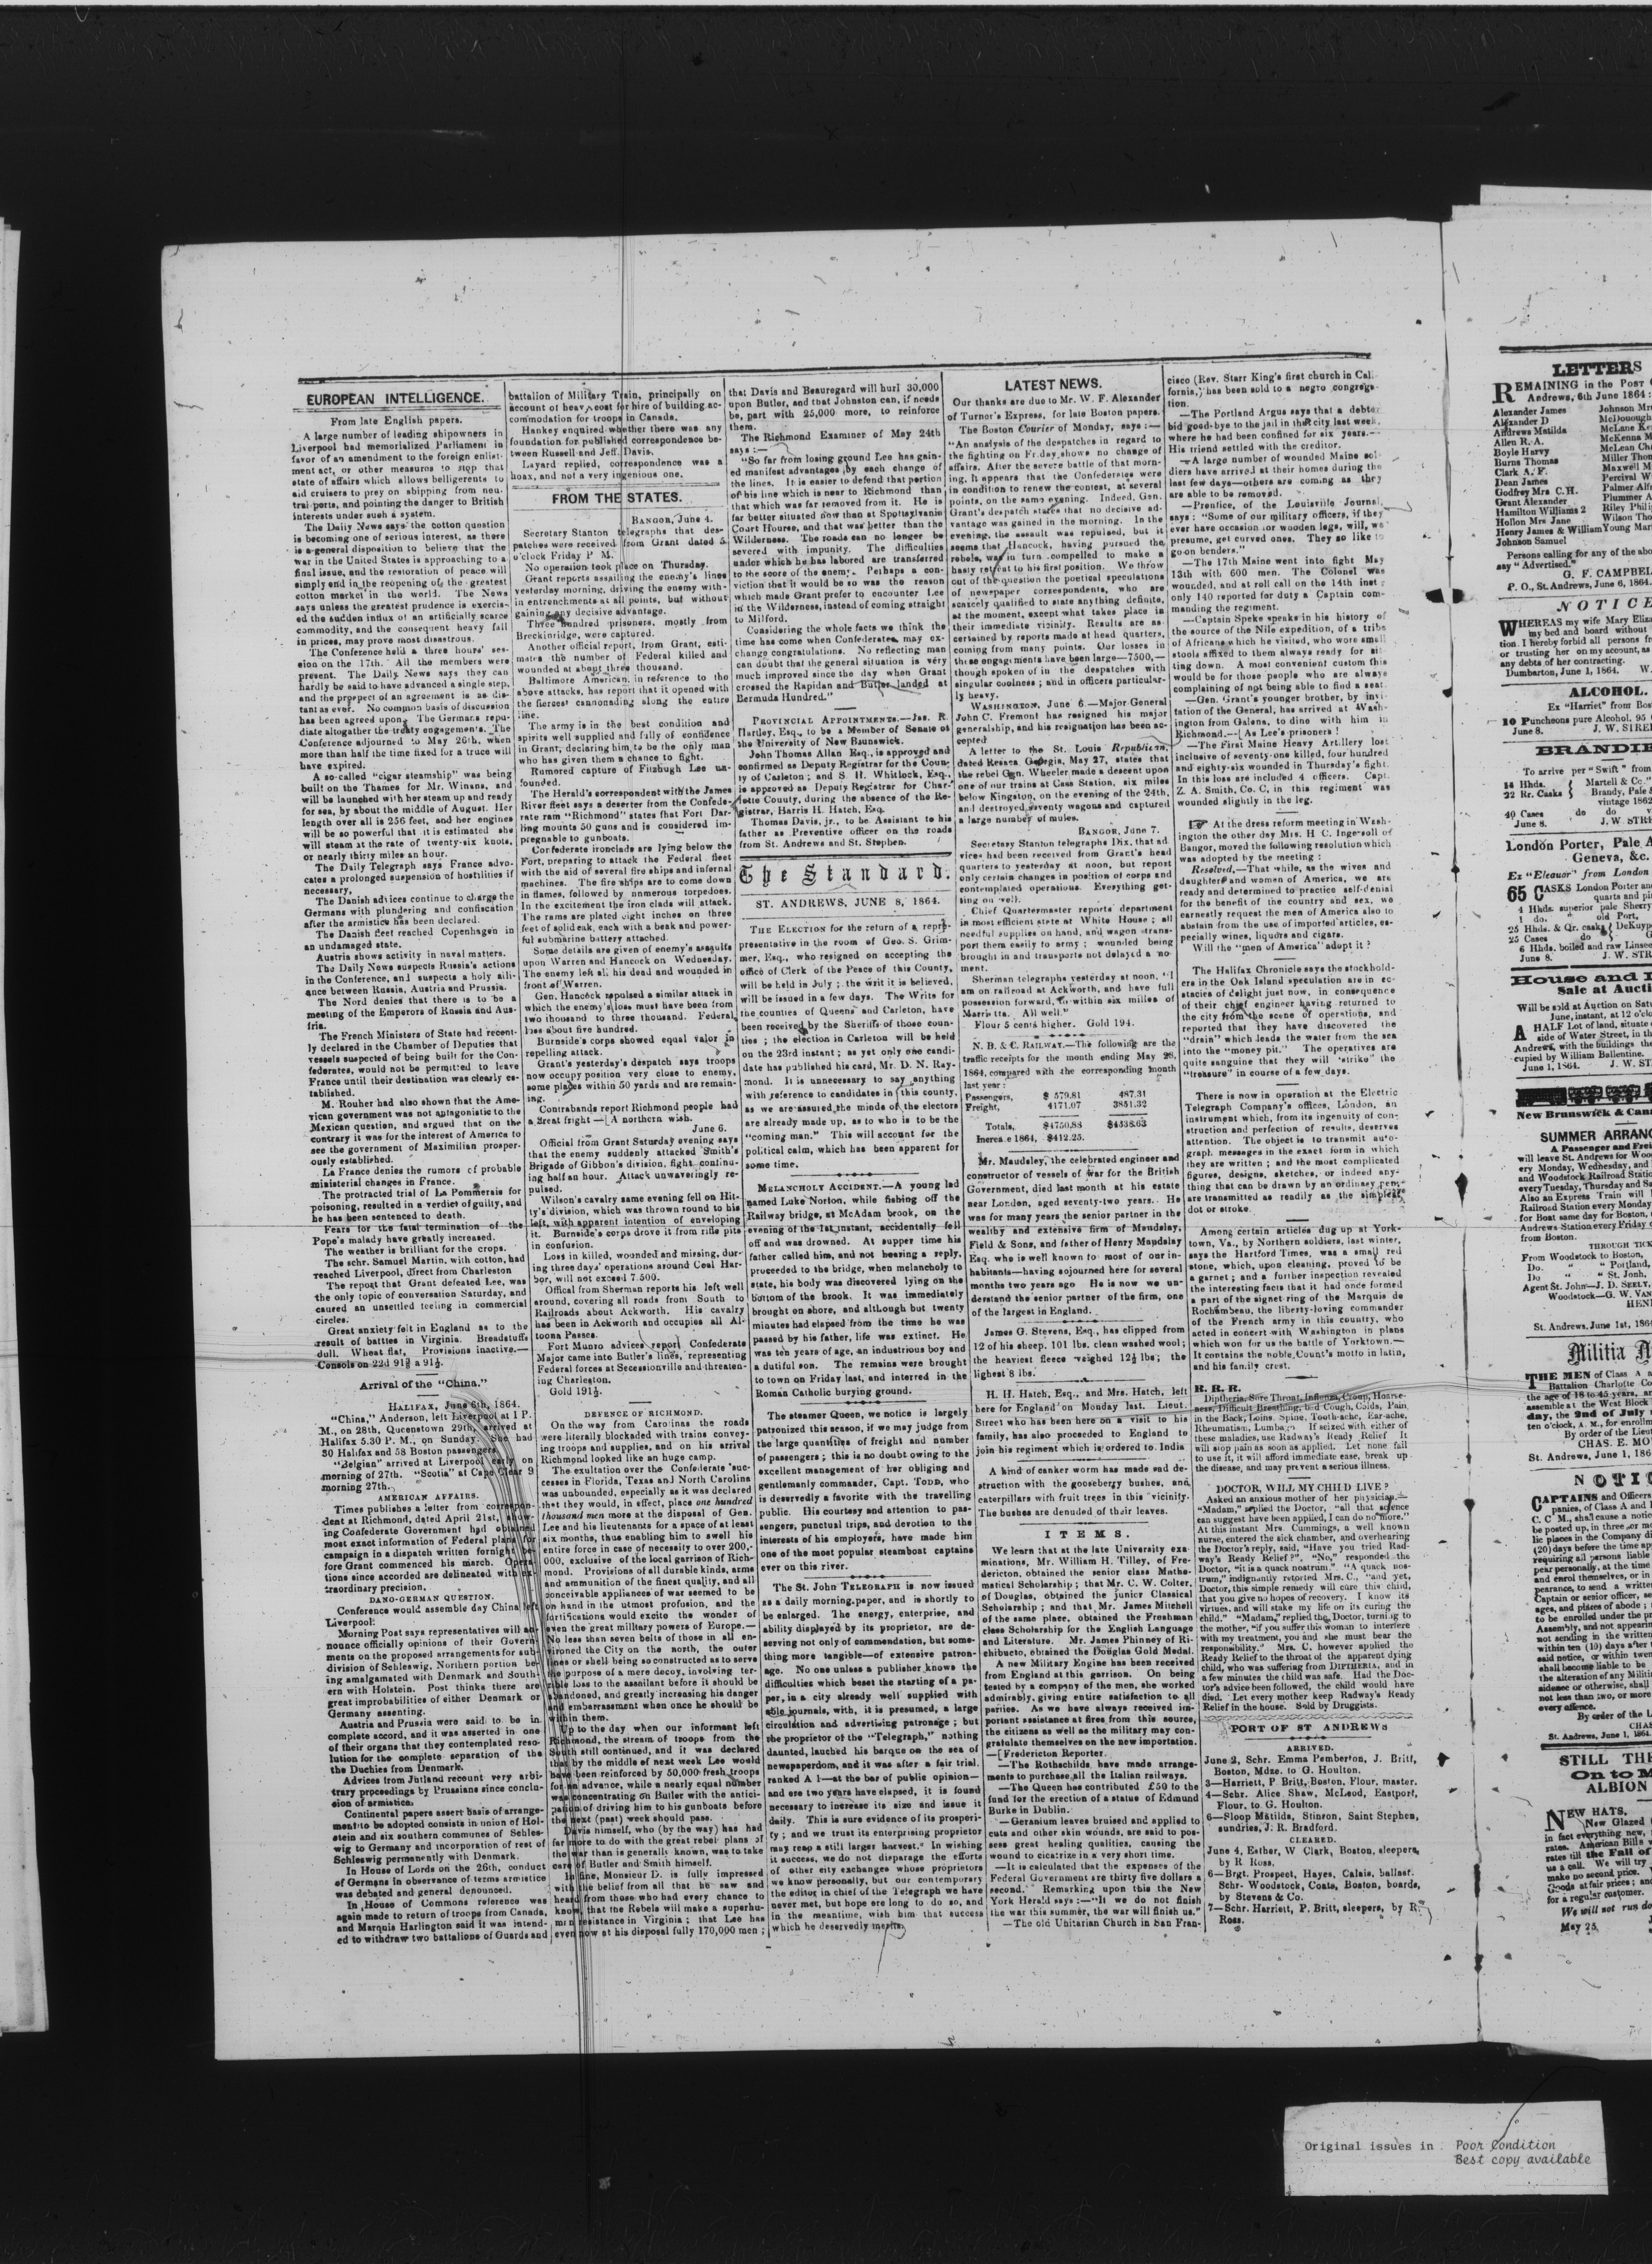 EUROPEAN INTELLIGENCE.
From late English papers.
A large number of leading shipowners in
Liverpool had memorialized Parliament in
favor of an amendment to the foreign enlist-
ment act, or other measures to stop that
state of affairs which allows belligerents to
aid cruisers to prey on shipping from neu-
tral ports, and pointing the danger to British
interests under such a system.
The Daily News says the cotton question
is becoming one of serious interest, as there
is a general disposition to believe that the
war in the United States is approaching to a
final issue, and the restoration of peace will
simply end in the reopening of the greatest
cotton market in the world. The News
says unless the greatest prudence is exercis-
ed the sudden influx of an artificially scarce
commodity, and the consequent heavy fall
in prices, may prove most disastrous.
The Conference held a three hours' ses-
sion on the 17th. All the members were
present. The Daily News says they can
hardly be said to have advanced a single step,
and the prospect of an agreement is as dis-
tant as ever. No common basis of discussion
has been agreed upon. The Germans repu-
diate altogather the treaty engagements. The
Conference adjourned to May 26th, when
more than half the time fixed for a truce will
have expired.
A so-called "cigar steamship" was being
built on the Thames for Mr. Winans, and
will be launched with her steam up and ready
for sea, by about the middle of August. Her
length over all is 256 feet, and her engines
will be so powerful that it is estimated she
will steam at the rate of twenty-six knots,
or nearly thirty miles an hour.
The Daily Telegraph says France advo-
cates a prolonged suspension of hostilities if
necessary.
The Danish advices continue to charge the
Germans with plundering and confiscation
after the armistice has been declared.
The Danish fleet reached Copenhagen in
an undamaged state.
Austria shows activity in naval matters.
The Daily News suspects Russia's actions
in the Conference, and suspects a holy alli-
ance between Russia, Austria and Prussia.
The Nord denies that there is to be a
meeting of the Emperors of Russia and Aus-
tria.
The French Ministers of State had recent-
ly declared in the Chamber of Deputies that
vessels suspected of being built for the Con-
federates, would not be permitted to leave
France until their destination was clearly es-
tablished.
M. Rouher had also shown that the Ame-
rican government was not antagonistic to the
Mexican question, and argued that on the
contrary it was for the interest of America to
see the government of Maximilian prosper-
ously established.
La France denies the rumors of probable
ministerial changes in France.
The protracted trial of La Pommerais for
poisoning, resulted in a verdict of guilty, and
he has been sentenced to death.
Fears for the fatal termination of the
Pope's malady have greatly increased.
The weather is brilliant for the crops.
The schr. Samuel Martin, with cotton, had
reached Liverpool, direct from Charleston
The report that Grant defeated Lee, was
the only topic of conversation Saturday, and
caused an unsettled feeling in commercial
circles.
Great anxiety felt in England as to the
result of battles in Virginia. Breadstuffs
dull. Wheat flat, Provisions inactive.—
Consols on 22d 91¾ a 91½.
Arrival of the "China."
HALIFAX, June 6th, 1864.
"China," Anderson, left Liverpool at 1 P.
M., on 28th, Queenstown 29th, arrived at
Halifax 5.30 P. M., on Sunday. She had
30 Halifax and 58 Boston passengers.
"Belgian" arrived at Liverpool early on
morning of 27th. "Scotia" at Cape Clear 9
morning 27th.
AMERICAN AFFAIRS.
Times publishes a letter from correspon-
dent at Richmond, dated April 21st, show-
ing Confederate Government had obtained
most exact information of Federal plans for
campaign in a dispatch written fornight be-
fore Grant commenced his march. Opera-
tions since accorded are delineated with ex-
traordinary precision.
DANO-GERMAN QUESTION.
Conference would assemble day China left
Liverpool:
Morning Post says representatives will an-
nounce officially opinions of their Govern-
ments on the proposed arrangements for sub-
division of Schleswig. Northern portion be-
ing amalgamated with Denmark and South-
ern with Holstein. Post thinks there are
great improbabilities of either Denmark or
Germany assenting.
Austria and Prussia were said to be in
complete accord, and it was asserted in one
of their organs that they contemplated reso-
lution for the complete separation of the
the Duchies from Denmark.
Advices from Jutland recount very arbi-
trary proceedings by Prussians since conclu-
sion of armistice.
Continental papers assert basis of arrange-
ment to be adopted consists in union of Hol-
stein and six southern communes of Schles-
wig to Germany and incorporation of rest of
Schleswig permanently with Denmark.
In House of Lords on the 26th, conduct
of Germans in observance of terms armistice
was debated and general denounced.
In House of Commons reference was
again made to return of troops from Canada,
and Marquis Harlington said it was intend-
ed to withdraw two battalions of Guards and
battalion of Military Train, principally on
account of heavy cost for hire of building ac-
commodation for troops in Canada.
Hankey enquired whether there was any
foundation for published correspondence be-
tween Russell and Jeff. Davis.
Layard replied, correspondence was a
hoax, and not a very ingenious one.
FROM THE STATES.
BANGOR, June 4.
Secretary Stanton telegraphs that des-
patches were received from Grant dated 5
o'clock Friday P M.
No operation took place on Thursday.
Grant reports assailing the enemy's lines
yesterday morning, driving the enemy with-
in entrenchments at all points, but without
gaining any decisive advantage.
Three hundred prisoners, mostly from
Breckinridge, were captured.
Another official report, from Grant, esti-
mates the number of Federal killed and
wounded at about three thousand.
Baltimore American, in reference to the
above attacks, has report that it opened with
the fiercest cannonading along the entire
line.
The army is in the best condition and
spirits well supplied and fully of confidence
in Grant; declaring him to be the only man
who has given them a chance to fight.
Rumored capture of Fitzhugh Lee un-
founded.
The Herald's correspondent with the James
River fleet says a deserter from the Confede-
rate ram "Richmond" states that Fort Dar-
ling mounts 50 guns and is considered im-
pregnable to gunboats.
Confederate ironclads are lying below the
Fort, preparing to attack the Federal fleet
with the aid of several fire ships and infernal
machines. The fire ships are to come down
in flames, followed by numerous torpedoes.
In the excitement the iron clads will attack.
The rams are plated eight inches on three
feet of solid oak, each with a beak and power-
ful submarine battery attached.
Some details are given of enemy's assaults
upon Warren and Hancock on Wednesday.
The enemy left all his dead and wounded in
front of Warren.
Gen. Hancock repulsed a similar attack in
which the enemy's loss must have been from
two thousand to three thousand. Federal
loss about five hundred.
Burnside's corps showed equal valor in
repelling attack.
Grant's yesterday's despatch says troops
now occupy position very close to enemy,
some places within 50 yards and are remain-
ing.
Contrabands report Richmond people had
a great fright—[A northern wish.
June 6.
Official from Grant Saturday evening says
that the enemy suddenly attacked Smith's
Brigade of Gibbon's division, fight continu-
ing half an hour. Attack unwaveringly re-
pulsed.
Wilson's cavalry same evening fell on Hit-
ty's division, which was thrown round to his
left, with apparent intention of enveloping
it. Burnside's corps drove it from rifle pits
in confusion.
Loss in killed, wounded and missing, dur-
ing three days' operations around Coal Har-
bor, will not exceed 7.500.
Offical from Sherman reports his left well
around, covering all roads from South to
Railroads about Ackworth. His cavalry
has been in Ackworth and occupies all Al-
toona Passes.
Fort Munro advices report Confederate
Major came into Butler's lines, representing
Federal forces at Secessionville and threaten-
ing Charleston.
Gold 191½.
DEFENCE OF RICHMOND.
On the way from Carolinas the roads
were literally blockaded with trains convey-
ing troops and supplies, and on his arrival
Richmond looked like an huge camp.
The exultation over the Confederate suc-
cesses in Florida, Texas and North Carolina
was unbounded, especially as it was declared
that they would, in effect, place one hundred
thousand men more at the disposal of Gen.
Lee and his lieutenants for a space of at least
six months, thus enabling him to swell his
entire force in case of necessity to over 200,-
000, exclusive of the local garrison of Rich-
mond. Provisions of all durable kinds, arms
and ammunition of the finest quality, and all
conceivable appliances of war seemed to be
on hand in the utmost profusion, and the
fortifications would excite the wonder of
even the great military powers of Europe.—
No less than seven belts of those in all en-
vironed the City on the north, the outer
lines or shell being so constructed as to serve
the purpose of a mere decoy, involving ter-
rible loss to the assailant before it should be
abandoned, and greatly increasing his danger
and embarrassment when once he should be
within them.
Up to the day when our informant left
Richmond, the stream of troops from the
South still continued, and it was declared
that by the middle of next week Lee would
have been reinforced by 50,000 fresh troops
for an advance, while a nearly equal number
was concentrating on Butler with the antici-
pation of driving him to his gunboats before
the next (past) week should pass.
Davis himself, who (by the way) has had
far more to do with the great rebel plans of
the war than is generally known, was to take
care of Butler and Smith himself.
In fine, Monsieur D. is fully impressed
with the belief from all that he saw and
heard from those who had every chance to
know, that the Rebels will make a superhu-
man resistance in Virginia; that Lee has
even now at his disposal fully 170,000 men;
that Davis and Beauregard will hurl 30,000
upon Butler, and that Johnston can, if needs
be, part with 25,000 more, to reinforce
them.
The Richmond Examiner of May 24th
says:—
"So far from losing ground Lee has gain-
ed manifest advantages by each change of
the lines. It is easier to defend that portion
of his line which is near to Richmond than
that which was far removed from it. He is
far better situated now than at Spottsylvania
Court House, and that was better than the
Wilderness. The roads can no longer be
severed with impunity. The difficulties
under which he has labored are transferred
to the score of the enemy. Perhaps a con-
viction that it would be so was the reason
which made Grant prefer to encounter Lee
in the Wilderness, instead of coming straight
to Milford.
Considering the whole facts we think the
time has come when Confederates may ex-
change congratulations. No reflecting man
can doubt that the general situation is very
much improved since the day when Grant
crossed the Rapidan and Butler landed at
Bermuda Hundred."
PROVINCIAL APPOINTMENTS.—Jas. R.
Hartley, Esq., to be a Member of Senate of
the University of New Brunswick.
John Thomas Allan Esq., is approved and
confirmed as Deputy Registrar for the Coun-
ty of Carleton; and S. H. Whitlock, Esq.,
is approved as Deputy Registrar for Char-
lotte County, during the absence of the Re-
gistrar, Harris H. Hatch, Esq.
Thomas Davis, jr., to be Assistant to his
father as Preventive officer on the roads
from St. Andrews and St. Stephen.
The Standard.
ST. ANDREWS, JUNE 8, 1864.
THE ELECTION for the return of a repre-
presentative in the room of Geo. S. Grim-
mer, Esq., who resigned on accepting the
office of Clerk of the Peace of this County,
will be held in July; the writ it is believed,
will be issued in a few days. The Writs for
the counties of Queens and Carleton, have
been received by the Sheriffs of those coun-
ties; the election in Carleton will be held
on the 23rd instant; as yet only one candi-
date has published his card, Mr. D. N. Ray-
mond. It is unnecessary to say anything
with reference to candidates in this county,
as we are assured the minds of the electors
are already made up, as to who is to be the
"coming man." This will account for the
political calm, which has been apparent for
some time.
MELANCHOLY ACCIDENT.—A young lad
named Luke Norton, while fishing off the
Railway bridge, at McAdam brook, on the
evening of the 1st instant, accidentally fell
off and was drowned. At supper time his
father called him, and not hearing a reply,
proceeded to the bridge, when melancholy to
state, his body was discovered lying on the
bottom of the brook. It was immediately
brought on shore, and although but twenty
minutes had elapsed from the time he was
passed by his father, life was extinct. He
was ten years of age, an industrious boy and
a dutiful son. The remains were brought
to town on Friday last, and interred in the
Roman Catholic burying ground.
The steamer Queen, we notice is largely
patronized this season, if we may judge from
the large quantities of freight and number
of passengers; this is no doubt owing to the
excellent management of her obliging and
gentlemanly commander, Capt. TODD, who
is deservedly a favorite with the travelling
public. His courtesy and attention to pas-
sengers, punctual trips, and devotion to the
interests of his employers, have made him
one of the most popular steamboat captains
ever on this river.
The St. John TELEGRAPH is now issued
as a daily morning paper, and is shortly to
be enlarged. The energy, enterprise, and
ability displayed by its proprietor, are de-
serving not only of commendation, but some-
thing more tangible—of extensive patron-
age. No one unless a publisher knows the
difficulties which beset the starting of a pa-
per, in a city already well supplied with
able journals, with, it is presumed, a large
circulation and advertising patronage; but
the proprietor of the "Telegraph," nothing
daunted, lauched his barque on the sea of
newspaperdom, and it was after a fair trial,
ranked A 1—at the bar of public opinion—
and ere two years have elapsed, it is found
necessary to increase its size and issue it
daily. This is sure evidence of its prosperi-
ty; and we trust its enterprising proprietor
may reap a still larger harvest. In wishing
it success, we do not disparage the efforts
of other city exchanges whose proprietors
we know personally, but our contemporary
the editor in chief of the Telegraph we have
never met, but hope ere long to do so, and
in the meantime, wish him that success
which he deservedly merits.
LATEST NEWS.
Our thanks are due to Mr. W. F. Alexander
of Turner's Express, for late Boston papers.
The Boston Courier of Monday, says:—
"An analysis of the despatches in regard to
the fighting on Friday shows no change of
affairs. After the severe battle of that morn-
ing, It appears that the Confederates were
in condition to renew the contest, at several
points, on the same evening. Indeed, Gen.
Grant's despatch states that no decisive ad-
vantage was gained in the morning. In the
evening, the assault was repulsed, but it
seems that Hancock, having pursued the
rebels, was in turn compelled to make a
hasty retreat to his first position. We throw
out of the question the poetical speculations
of newspaper correspondents, who are
scarcely qualified to state anything definite,
at the moment, except what takes place in
their immediate vicinity. Results are as-
certained by reports made at head quarters,
coming from many points. Our losses in
these engagements have been large—7500,—
though spoken of in the despatches with
singular coolness; and in officers particular-
ly heavy.
WASHINGTON, June 6.—Major-General
John C. Fremont has resigned his major
generalship, and his resignation has been ac-
cepted
A letter to the St. Louis Republican,
dated Resaca Georgia, May 27, states that
the rebel Gen. Wheeler made a descent upon
one of our trains at Cass Station, six miles
below Kingston, on the evening of the 24th,
and destroyed seventy wagons and captured
a large number of mules.
BANGOR, June 7.
Secretary Stanton telegraphs Dix, that ad-
vices had been received from Grant's head
quarters to yesterday at noon, but report
only certain changes in position of corps and
contemplated operations. Everything get-
ting on well.
Chief Quartermaster reports department
in most efficient state at White House; all
needful supplies on hand, and wagon trans-
port them easily to army; wounded being
brought in and transports not delayed a mo-
ment.
Sherman telegraphs yesterday at noon, "I
am on railroad at Ackworth, and have full
possession forward, to within six miles of
Marrietta. All well."
Flour 5 cents higher. Gold 194.
N. B. & C. RAILWAY.—The following are the
traffic receipts for the month ending May 28,
1864, compared with the corresponding month
last year:
Passengers, $ 579.81 487.31
Freight, 4171.07 3851.32
Totals, $4750.88 $4338.63
Increa e 1864, $412.25.
Mr. Maudsley, the celebrated engineer and
constructor of vessels of war for the British
Government, died last month at his estate
near London, aged seventy-two years. He
was for many years the senior partner in the
wealthy and extensive firm of Maudsley,
Field & Sons, and father of Henry Maudslay
Esq. who is well known to most of our in-
habitants—having sojourned here for several
months two years ago He is now we un-
derstand the senior partner of the firm, one
of the largest in England.
James G. Stevens, Esq., has clipped from
12 of his sheep, 101 lbs. clean washed wool;
the heaviest fleece weighed 12½ lbs; the
lighest 8 lbs.
H. H. Hatch, Esq., and Mrs. Hatch, left
here for England on Monday last. Lieut.
Street who has been here on a visit to his
family, has also proceeded to England to
join his regiment which is ordered to India
A kind of canker worm has made sad de-
struction with the gooseberry bushes, and
caterpillars with fruit trees in this vicinity.
The bushes are denuded of their leaves.
ITEMS.
We learn that at the late University exa-
minations, Mr. William H. Tilley, of Fre-
dericton, obtained the senior class Mathe-
matical Scholarship; that Mr. C. W. Colter,
of Douglas, obtained the junior Classical
Scholarship; and that Mr. James Mitchell
of the same place, obtained the Freshman
class Scholarship for the English Language
and Literature. Mr. James Phinney of Ri-
chibucto, obtained the Douglas Gold Medal.
A new Military Engine has been received
from England at this garrison. On being
tested by a company of the men, she worked
admirably, giving entire satisfaction to all
parties. As we have always received im-
portant assistance at fires from this source,
the citizens as well as the military may con-
gratulate themselves on the new importation.
—[Fredericton Reporter.
—The Rothschilds have made arrange-
ments to purchase all the Italian railways.
—The Queen has contributed £50 to the
fund for the erection of a statue of Edmund
Burke in Dublin.
—Geranium leaves bruised and applied to
cuts and other skin wounds, are said to pos-
sess great healing qualities, causing the
wound to cicatrize in a very short time.
—It is calculated that the expenses of the
Federal Government are thirty five dollars a
second. Remarking upon this the New
York Herald says:—"It we do not finish
the war this summer, the war will finish us."
—The old Unitarian Church in San Fran-
cisco (Rev. Starr King's first church in Cali-
fornia,) has been sold to a negro congrega-
tion.
—The Portland Argus says that a debtor
bid good-bye to the jail in that city last week,
where he had been confined for six years.—
His friend settled with the creditor.
—A large number of wounded Maine sol-
diers have arrived at their homes during the
last few days—others are coming as they
are able to be removed.
—Prentice, of the Louisville Journal,
says: "Some of our military officers, if they
ever have occasion for wooden legs, will, we
presume, get curved ones. They so like to
go on benders."
—The 17th Maine went into fight May
13th with 600 men. The Colonel was
wounded, and at roll call on the 14th inst.
only 140 reported for duty a Captain com-
manding the regiment.
—Captain Speke speaks in his history of
the source of the Nile expedition, of a tribe
of Africans which he visited, who wore small
stools affixed to them always ready for sit
ting down. A most convenient custom this
would be for those people who are always
complaining of not being able to find a seat.
—Gen. Grant's younger brother, by invi-
tation of the General, has arrived at Wash-
ington from Galena, to dine with him in
Richmond.—[As Lee's prisoners!
—The First Maine Heavy Artillery lost
inclusive of seventy-one killed, four hundred
and eighty-six wounded in Thursday's fight.
In this loss are included 4 officers. Capt.
Z. A. Smith, Co. C, in this regiment was
wounded slightly in the leg.
☞ At the dress reform meeting in Wash-
ington the other day Mrs. H C. Ingersoll of
Bangor, moved the following resolution which
was adopted by the meeting:
Resolved,—That while, as the wives and
daughters and women of America, we are
ready and determined to practice self-denial
for the benefit of the country and sex, we
earnestly request the men of America also to
abstain from the use of imported articles, es-
pecially wines, liquors and cigars.
Will the "men of America" adopt it?
The Halifax Chronicle says the stockhold-
ers in the Oak Island speculation are in ec-
stacies of delight just now, in consequence
of their chief engineer having returned to
the city from the scene of operations, and
reported that they have discovered the
"drain" which leads the water from the sea
into the "money pit." The operatives are
quite sanguine that they will "strike" the
"treasure" in course of a few days.
There is now in operation at the Electric
Telegraph Company's offices, London, an
instrument which, from its ingenuity of con-
struction and perfection of results, deserves
attention. The object is to transmit auto-
graph messages in the exact form in which
they are written; and the most complicated
figures, designs, sketches, or indeed any-
thing that can be drawn by an ordinary pen,
are transmitted as readily as the simplest
dot or stroke.
Among certain articles dug up at York-
town, Va., by Northern soldiers, last winter,
says the Hartford Times, was a small red
stone, which, upon cleaning, proved to be
a garnet; and a further inspection revealed
the interesting facts that it had once formed
a part of the signet ring of the Marquis de
Rochambeau, the liberty-loving commander
of the French army in this country, who
acted in concert with Washington in plans
which won for us the battle of Yorktown.—
It contains the noble Count's motto in latin,
and his family crest.
R. R. R.
Diptheria, Sore Throat, Influenza, Croup, Hoarse-
ness, Difficult Breathing, bad Cough, Colds, Pain
in the Back, Loins. Spine, Tooth-ache, Ear-ache,
Rheumatism, Lumbago If seized with either of
these maladies, use Radway's Ready Relief It
will stop pain as soon as applied. Let none fail
to use it, it will afford immediate ease, break up
the disease, and may prevent a serious illness.
DOCTOR, WILL MY CHILD LIVE?
Asked an anxious mother of her physician.—
"Madam," replied the Doctor, "all that science
can suggest have been applied, I can do no more."
At this instant Mrs. Cummings, a well known
nurse, entered the sick chamber, and overhearing
the Doctor's reply, said, "Have you tried Rad-
way's Ready Relief?". "No," responded the
Doctor, "it is a quack nostrum." "A quack nos-
trum," indignantly retorted Mrs. C., "and yet,
Doctor, this simple remedy will cure this child,
that you give no hopes of recovery. I know its
virtues, and will stake my life on its curing the
child." "Madam," replied the Doctor, turning to
the mother, "if you suffer this woman to interfere
with my treatment, you and she must bear the
responsibility." Mrs. C. however applied the
Ready Relief to the throat of the apparent dying
child, who was suffering from DIPTHERIA, and in
a few minutes the child was safe. Had the Doc-
tor's advice been followed, the child would have
died. Let every mother keep Radway's Ready
Relief in the house. Sold by Druggists.
PORT OF ST ANDREWS
ARRIVED.
June 2, Schr. Emma Pemberton, J. Britt,
Boston, Mdze. to G. Houlton.
3—Harriett, P Britt, Boston, Flour, master.
4—Schr. Alice Shaw, McLeod, Eastport,
Flour, to G. Houlton.
6—Sloop Matilda, Stinson, Saint Stephen,
sundries, J. R. Bradford.
CLEARED.
June 4, Esther, W Clark, Boston, sleepers,
by R Ross.
6—Brgt. Prospect, Hayes, Calais, ballast.
Schr. Woodstock, Coats, Boston, boards,
by Stevens & Co.
7—Schr. Harriett, P. Britt, sleepers, by R.
Ross.
LETTERS
REMAINING in the POST
Andrews, 6th June 1864:
Alexander James
Alexander D
Andrews Matilda
Allen R. A.
Boyle Harvy
Burns Thomas
Clark A. F.
Dean James
Godfrey Mrs C. H.
Grant Alexander
Hamilton Williams 2
Hollon Mrs Jane
Henry James & William
Johnson Samuel
Johnson Mr
McDonough
McLane
McKenna M
McLean Ch
Miller Thom
Maxwell M
Percival W
Palmer Alf
Plummer A
Riley Phili
Wilson Tho
Young Mar
Persons calling for any of the abo
say "Advertised."
G. F. CAMPBEL
P. O., St. Andrews, June 6, 1864.
NOTICE
WHEREAS my wife Mary Eliza
my bed and board without
tion. I hereby forbid all persons fr
or trusting her on my account, as
any debts of her contracting.
W.
Dumbarton, June 1, 1864.
ALCOHOL.
Ex "Harriet" from Bos
10 Puncheons pure Alcohol, 95
June 8. J. W. STREE
BRANDIE
To arrive per "Swift" from
14 Hhds. Martell & Co."
22 Rr. Casks Brandy, Pale &
vintage 1862
40 Cases do do v
June 8. J. W. STRE
London Porter, Pale A
Geneva, &c.
Ex "Eleanor" from London
65 CASKS London Porter and
quarts and pi
4 Hhds. superior pale Sherry
1 do. " old Port,
25 Hhds. & Qr. casks DeKuyp
25 Cases do G
6 Hhds. boiled and raw Linsee
June 8. J. W. STR
House and L
Sale at Aucti
Will be sold at Auction on Satu
June, instant, at 12 o'clo
A HALF Lot of land, situate
side of Water Street, in th
Andrews, with the buildings the
cupied by William Ballentine.
June 1, 1864. J. W. ST
New Brunswick & Cana
SUMMER ARRANG
A Passenger and Frei
will leave St. Andrews for Woo
ery Monday, Wednesday, and
and Woodstock Railroad Statio
every Tuesday, Thursday and Sa
Also an Express Train will
Railroad Station every Monday
for Boat same day for Boston,
Andrews Station every Friday
from Boston.
THROUGH TICK
From Woodstock to Boston,
Do. " " Portland,
Do " " St. Jonh.
Agent St. John—J. D. SEELY,
Woodstock—G. W. VAN
HEN
St. Andrews, June 1st, 186
Militia
THE MEN of Class A a
Battalion Charlotte Co
the age of 18 to 45 years, a
assemble at the West Block
day, the 2nd of July
ten o'clock, A. M., for enrollm
By order of the Lieut
CHAS. E. MO
St. Andrews, June 1, 186
NOTIC
CAPTAINS and Officers
panies, of Class A and
C. C M., shall cause a notic
be posted up, in three or mo
lic places in the Company di
(20) days before the time ap
requiring all persons liable
pear personally, at the time
and enrol themselves, or in
pearance, to send a written
Captain or senior officer, se
ages, and places of abode;
to be enrolled under the pr
Assembly, and not appearin
not sending in the written
within ten (10) days after
said notice, or within twen
shall become liable to be
the alteration of any Militi
sidence or otherwise, shall
not less than two, or more
every offence.
By order of the L
CHAS
St. Andrews, June 1, 1864.
STILL THE
On to M
ALBION
NEW HATS,
New Glazed
in fact everything new,
rates. American Bills
rates till the Fall of
us a call. We will try
make no second price.
Goods at fair prices; and
for a regular customer.
We will not run do
May 25.
Original issues in Poor Condition
Best copy available